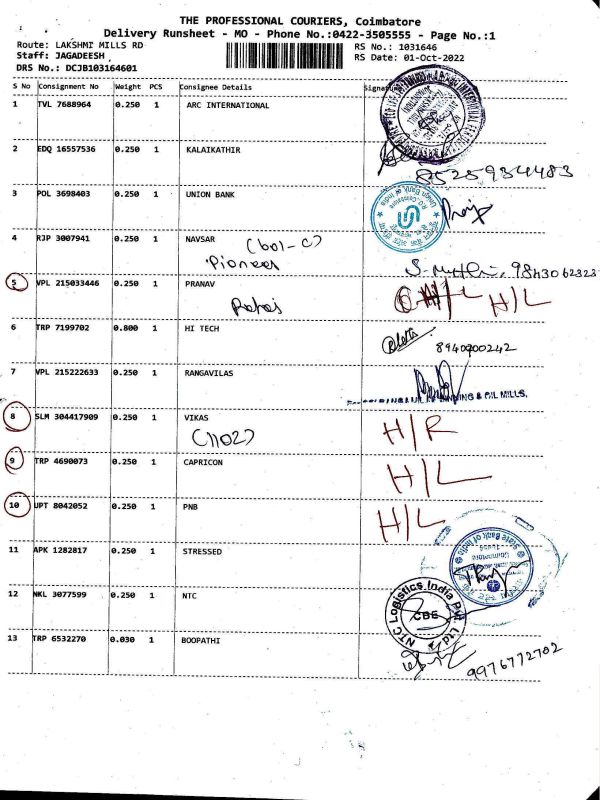 THE PROFESSIONAL COURIERS, Coimbatore
Delivery Runsheet - MO - Phone No.:0422-3505555 - Page No.:1
Route: LAKSHMI MILLS RD RS No.: 1031646
Staff: JAGADEESH RS Date: 01-Oct-2022
DRS No.: DCJB103164601
S No Consignment No Weight PCS Consignee Details
1 TVL 7688964 0.250 1 ARC INTERNATIONAL
2 EDQ 16557536 0.250 1 KALAIKATHIR
8525934483
3 POL 3698403 0.250 1 UNION BANK
Union Bank of India
4 RJP 3007941 0.250 1 NAVSAR (601-C)
Pioneer
9843062323
5 VPL 215033446 0.250 1 PRANAV H/L H/L
6 TRP 7199702 0.800 1 HI TECH
8940900242
7 VPL 215222633 0.250 1 RANGAVILAS
& OIL MILLS.
8 SLM 304417909 0.250 1 VIKAS H/R
(1102)
9 TRP 4690073 0.250 1 CAPRICON H/L
10 UPT 8042052 0.250 1 PNB H/L
State Bank of India
11 APK 1282817 0.250 1 STRESSED
12 NKL 3077599 0.250 1 NTC
NTC Logistics India Pvt Ltd
CBE
13 TRP 6532270 0.030 1 BOOPATHI
9976772702